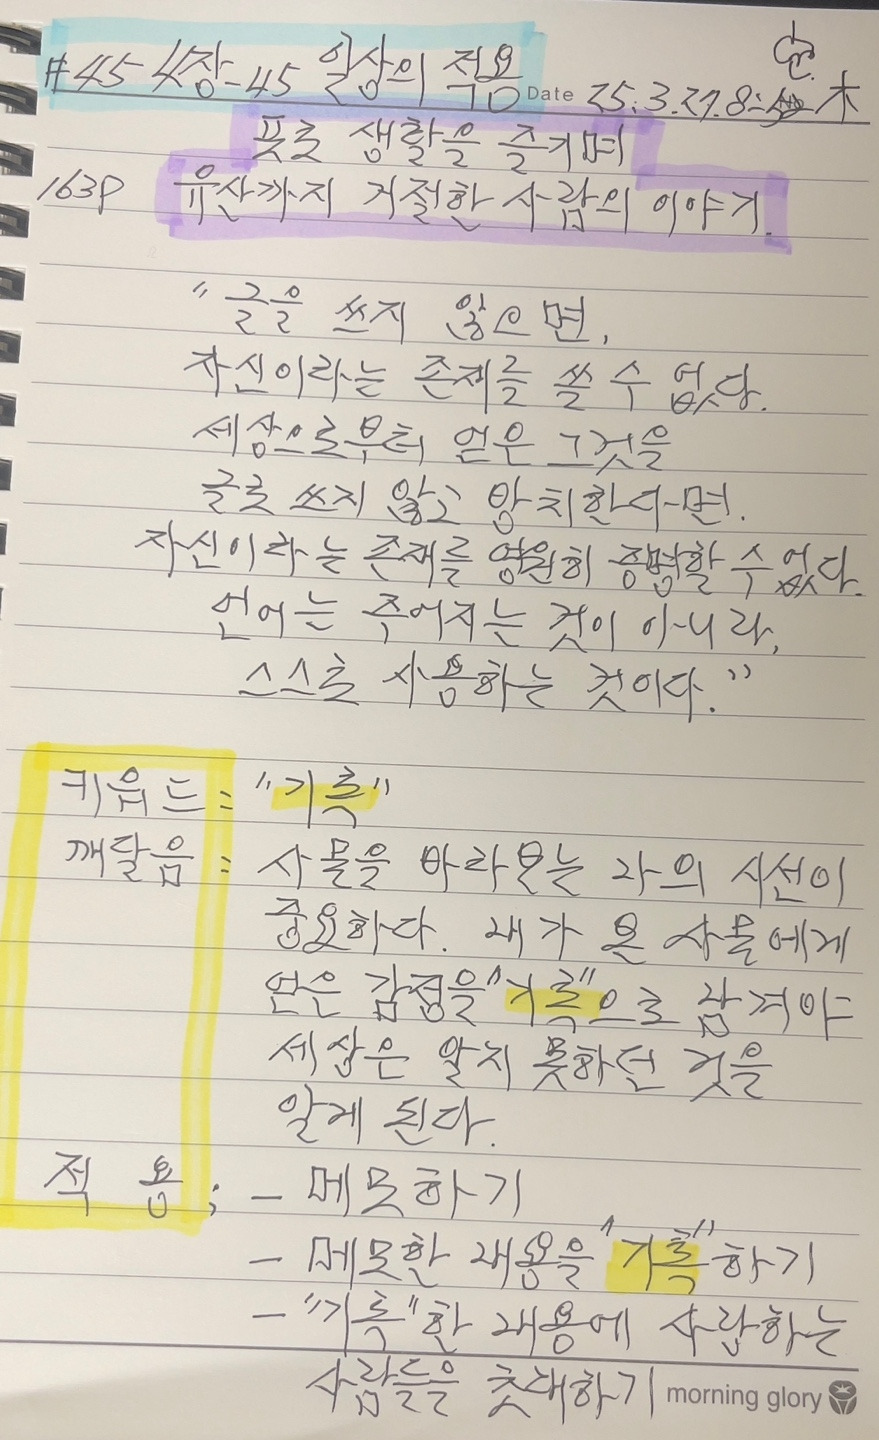 #45-4장-45 일상의 적요
Date 25.3.27.8: 木
폿로 생활을 즐기며
163P 유산까지 거절한 사람의 이야기.
"글을 쓰지 않으면,
자신이라는 존재를 쓸 수 없다.
세상으로부터 얻은 그것을
글로 쓰지 않고 방치한다면.
자신이라는 존재를 영원히 증명할 수 없다.
언어는 주어지는 것이 아니라,
스스로 사용하는 것이다."
키워드 = "기록"
깨달음 = 사물을 바라보는 나의 시선이
중요하다. 내가 본 사물에게
얻은 감정을 "기록"으로 남겨야
세상은 알지 못하던 것을
알게 된다.
적 용 ; - 메모하기
- 메모한 내용을 "기록"하기
- "기록"한 내용에 사랑하는
사람들을 초대하기
morning glory